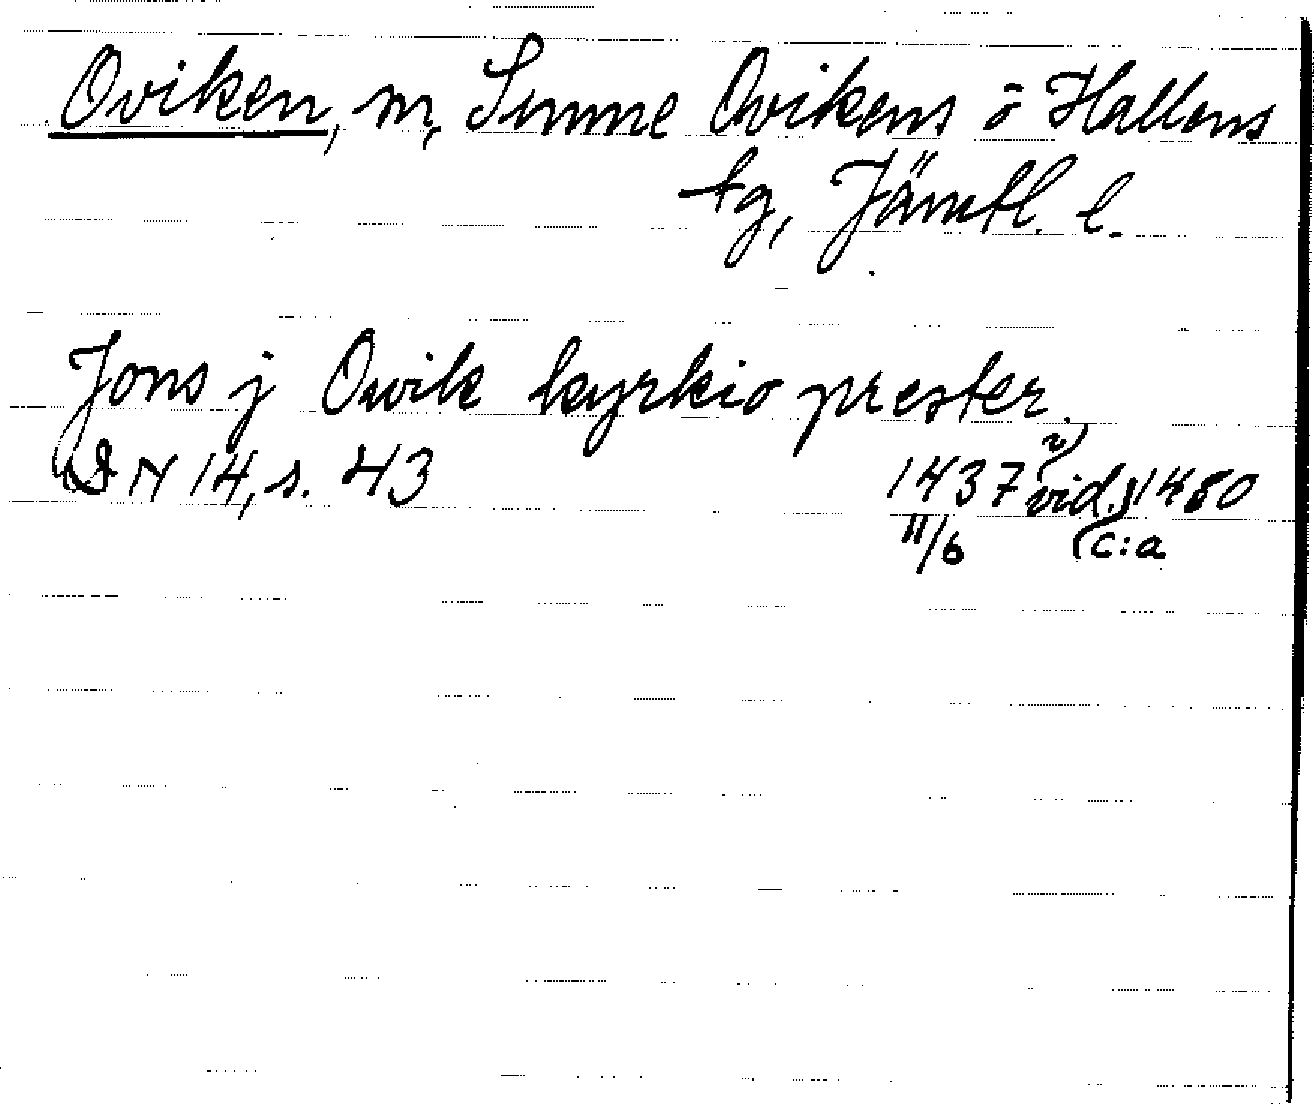 Oviken, m, Sunne Ovikens o Hallens
tg, Jämtl. l.
Jons j Owik kyrkio prester.
DN 14, s. 43 1437 vid. 1480
11/6 c:a